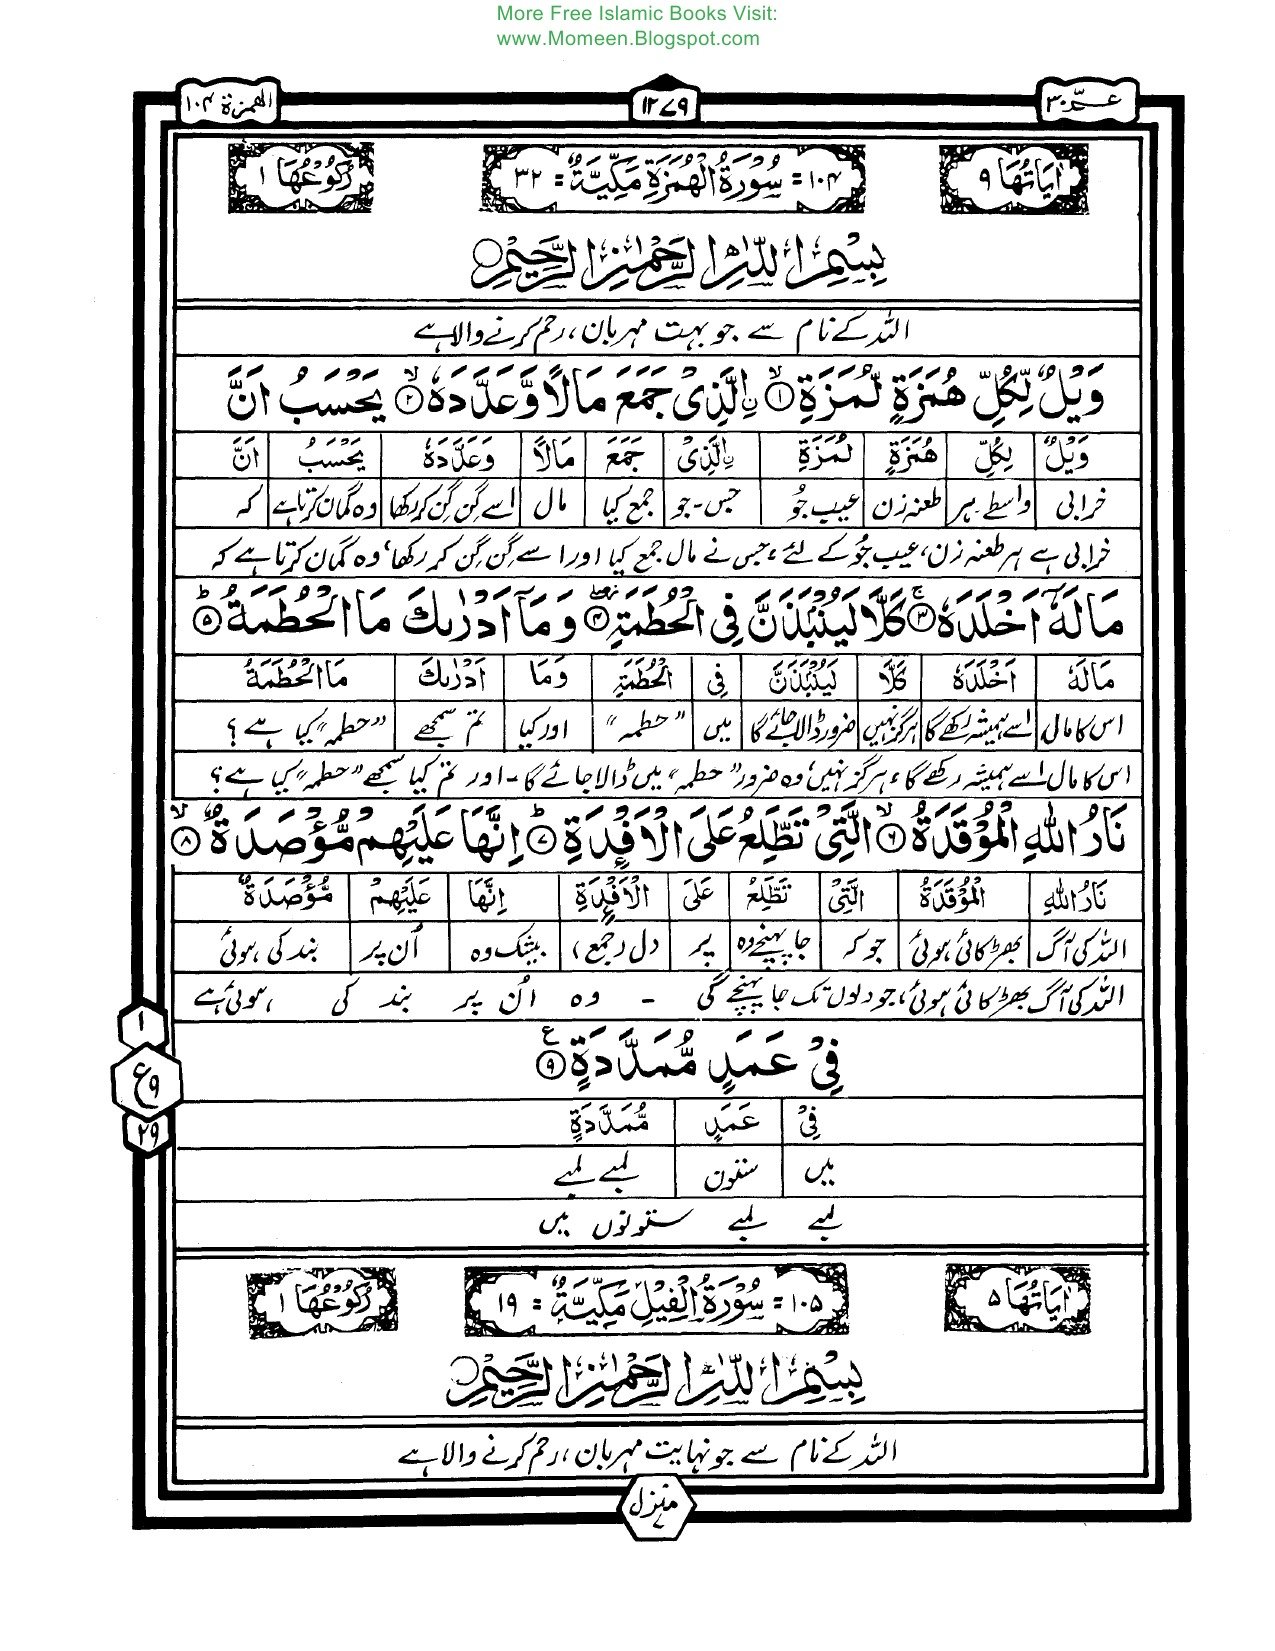 More Free Islamic Books Visit:
www.Momeen.Blogspot.com
عـــمّ ۳۰ ۱۲۷۹ الهمزة ۱۰۴
اٰيَاتُهَا ۹ ۱۰۴ = سُوْرَةُ الْهُمَزَةِ مَكِّيَّةٌ = ۳۲ رُكُوْعُهَا ۱
بِسْمِ اللّٰهِ الرَّحْمٰنِ الرَّحِيْمِ
اللہ کے نام سے جو بہت مہربان، رحم کرنے والا ہے
وَيْلٌ لِّكُلِّ هُمَزَةٍ لُّمَزَةِ ۙ‏۱ اۨلَّذِىْ جَمَعَ مَالًا وَّعَدَّدَهٗ ۙ‏۲ يَحْسَبُ اَنَّ
وَيْلٌ لِكُلِّ هُمَزَةٍ لُمَزَةِ اۨلَّذِىْ جَمَعَ مَالًا وَعَدَّدَهٗ يَحْسَبُ اَنَّ
خرابی واسطے ہر طعنہ زن عیب جُو جس - جو جمع کیا مال اسے گِن گِن کر رکھا وہ گمان کرتا ہے کہ
خرابی ہے ہر طعنہ زن، عیب جُو کے لئے، جس نے مال جمع کیا اور اسے گِن گِن کر رکھا، وہ گمان کرتا ہے کہ
مَالَهٗٓ اَخْلَدَهٗ ۚ‏۳ كَلَّا لَيُنْۢبَذَنَّ فِى الْحُطَمَةِ ۖ‏۴ وَمَآ اَدْرٰىكَ مَا الْحُطَمَةُ ؕ‏۵
مَالَهٗ اَخْلَدَهٗ كَلَّا لَيُنْۢبَذَنَّ فِى الْحُطَمَةِ وَمَا اَدْرٰىكَ مَا الْحُطَمَةُ
اس کا مال اسے ہمیشہ رکھے گا ہرگز نہیں ضرور ڈالا جائے گا میں "حطمہ" اور کیا تم سمجھے "حطمہ" کیا ہے ؟
اس کا مال اسے ہمیشہ رکھے گا، ہرگز نہیں، وہ ضرور "حطمہ" میں ڈالا جائے گا - اور تم کیا سمجھے "حطمہ" کیا ہے ؟
نَارُ اللّٰهِ الْمُوْقَدَةُ ۙ‏۶ الَّتِىْ تَطَّلِعُ عَلَى الْاَفْـِٕدَةِ ؕ‏۷ اِنَّهَا عَلَيْهِمْ مُّؤْصَدَةٌ ۙ‏۸
نَارُ اللّٰهِ الْمُوْقَدَةُ الَّتِىْ تَطَّلِعُ عَلَى الْاَفْـِٕدَةِ اِنَّهَا عَلَيْهِمْ مُّؤْصَدَةٌ
اللہ کی آگ بھڑکائی ہوئی جو کہ جا پہنچے وہ پر دل (جمع) بیشک وہ اُن پر بند کی ہوئی
اللہ کی آگ بھڑکائی ہوئی، جو دلوں تک جا پہنچے گی - وہ اُن پر بند کی ہوئی ہے
۱
فِىْ عَمَدٍ مُّمَدَّدَةٍ ۹ ع
ع ۹
فِىْ عَمَدٍ مُّمَدَّدَةٍ
۲۹
میں ستون لمبے لمبے
لمبے لمبے ستونوں میں
اٰيَاتُهَا ۵ ۱۰۵ = سُوْرَةُ الْفِيْلِ مَكِّيَّةٌ = ۱۹ رُكُوْعُهَا ۱
بِسْمِ اللّٰهِ الرَّحْمٰنِ الرَّحِيْمِ
اللہ کے نام سے جو نہایت مہربان، رحم کرنے والا ہے
منزل ۷